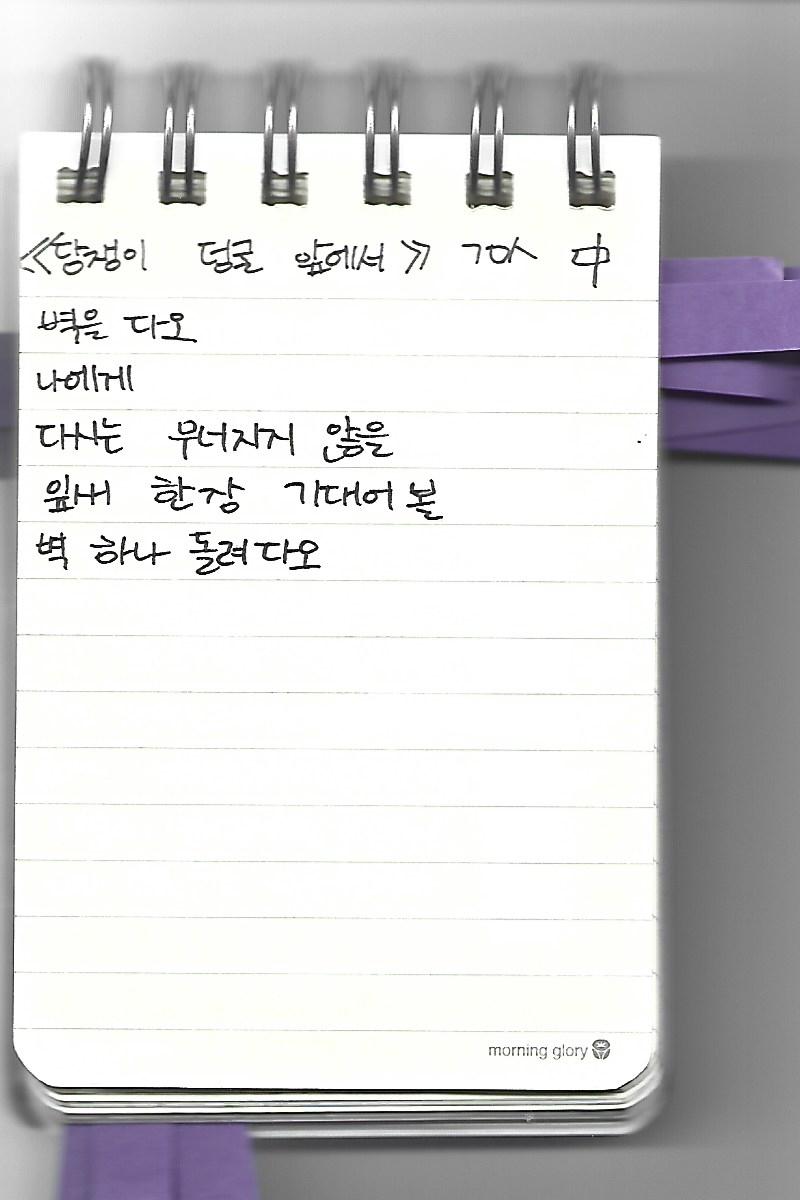 ≪담쟁이 덩굴 앞에서≫ 中
벽을 다오
나에게
다시는 무너지지 않을
잎새 한장 기대어 볼
벽 하나 돌려다오
morning glory